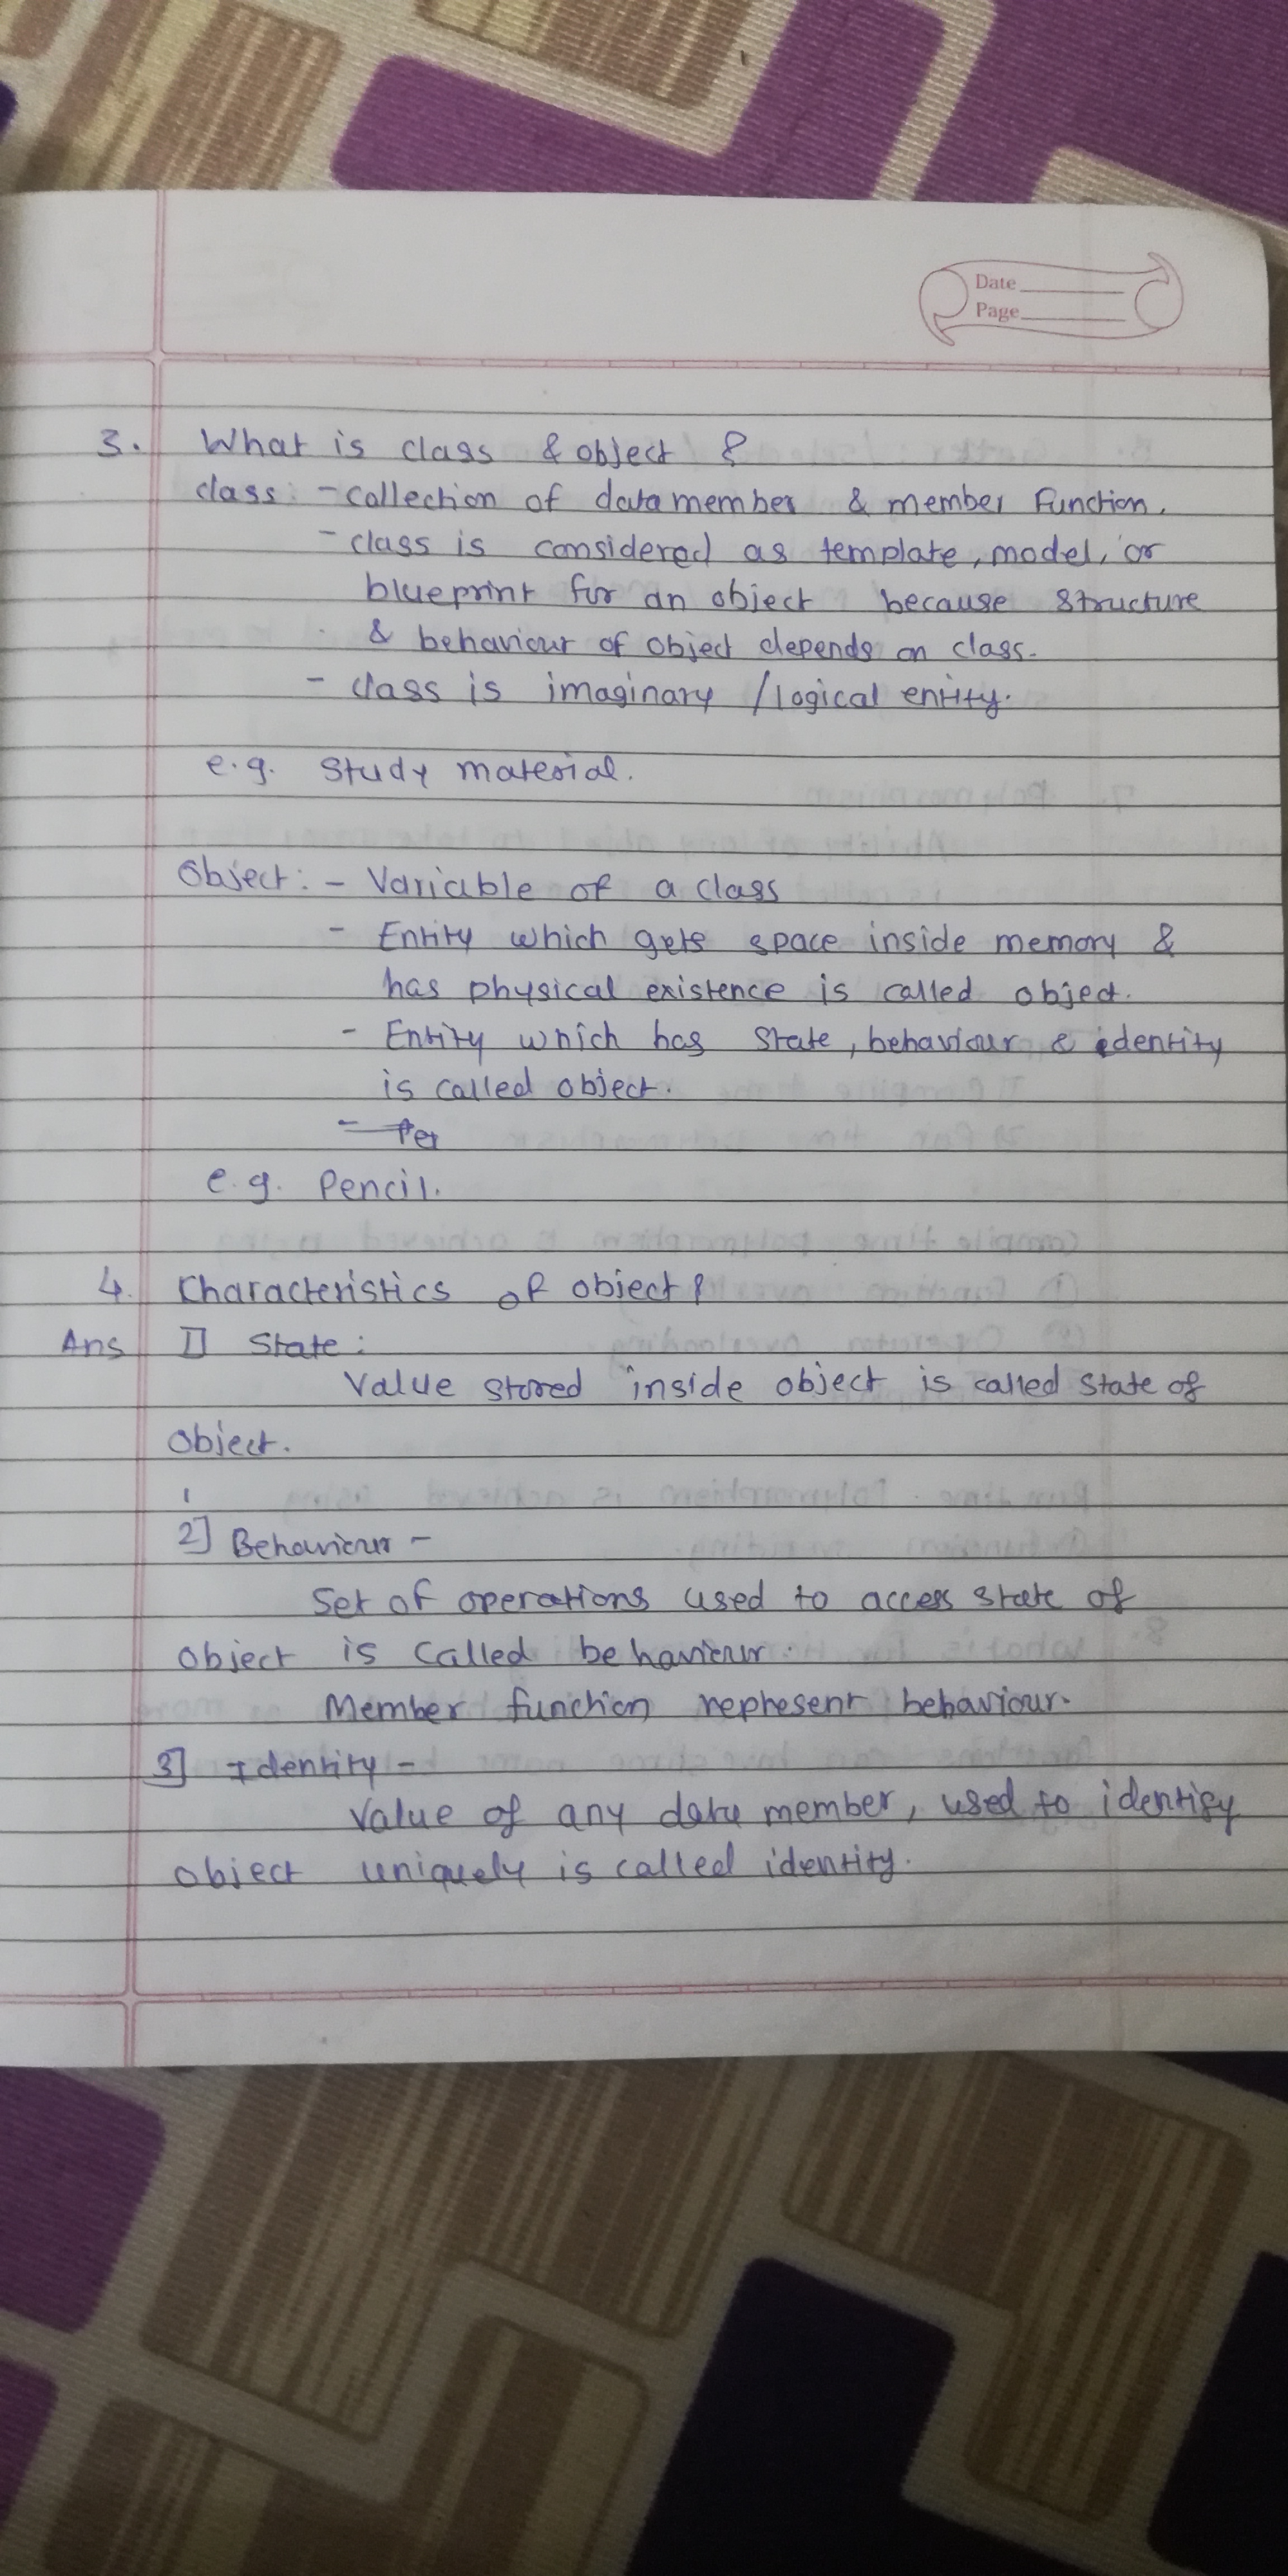 Date
Page
3. What is class & object ?
class: - collection of data member & member Function.
- class is considered as template, model, or
blueprint for an object because structure
& behaviour of object depends on class.
- class is imaginary / logical entity.
e.g. study material.
Object: - Variable of a class
- Entity which gets space inside memory &
has physical existence is called object.
- Entity which has state, behaviour & identity
is called object.
e.g. Pencil.
4. Characteristics of object?
Ans 1] State:
Value stored inside object is called state of
object.
2] Behaviour -
Set of operations used to access state of
object is called behaviour.
Member function represent behaviour.
3] Identity -
Value of any data member, used to identify
object uniquely is called identity.